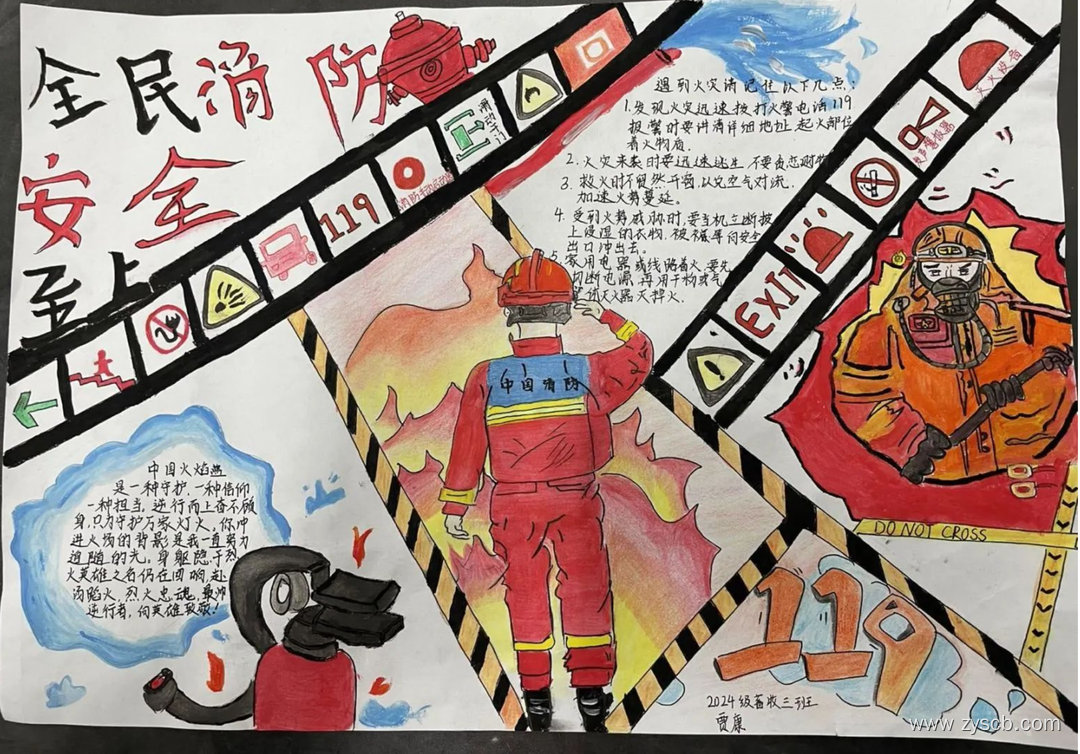 全民消防
安全
至上
119
EXIT
遇到火灾请记住以下几点:
1.发现火灾迅速拨打火警电话119
报警时要讲清详细地址、起火部位
着火物质.
2. 火灾来袭时要迅速逃生,不要贪恋财物
3. 救火时不贸然开窗,以免空气对流,
加速火势蔓延。
4. 受到火势威胁时,要当机立断披
上浸湿的衣物,被褥等向安全
出口冲出去。
5.家用电器或线路着火,要先
切断电源,再用干粉或气
灭火器灭掉火.
中国消防
DO NOT CROSS
中国火焰蓝
是一种守护,一种信仰
一种担当,逆行而上奋不顾
身,只为守护万家灯火,你冲
进火场的背影是我一直努力
追随的光。身躯隐于烈
火英雄之名仍在回响,赴
汤蹈火,烈火忠魂,最帅
逆行者,向英雄致敬!
119
2024级畜牧三班
贾康
www.zyscb.com